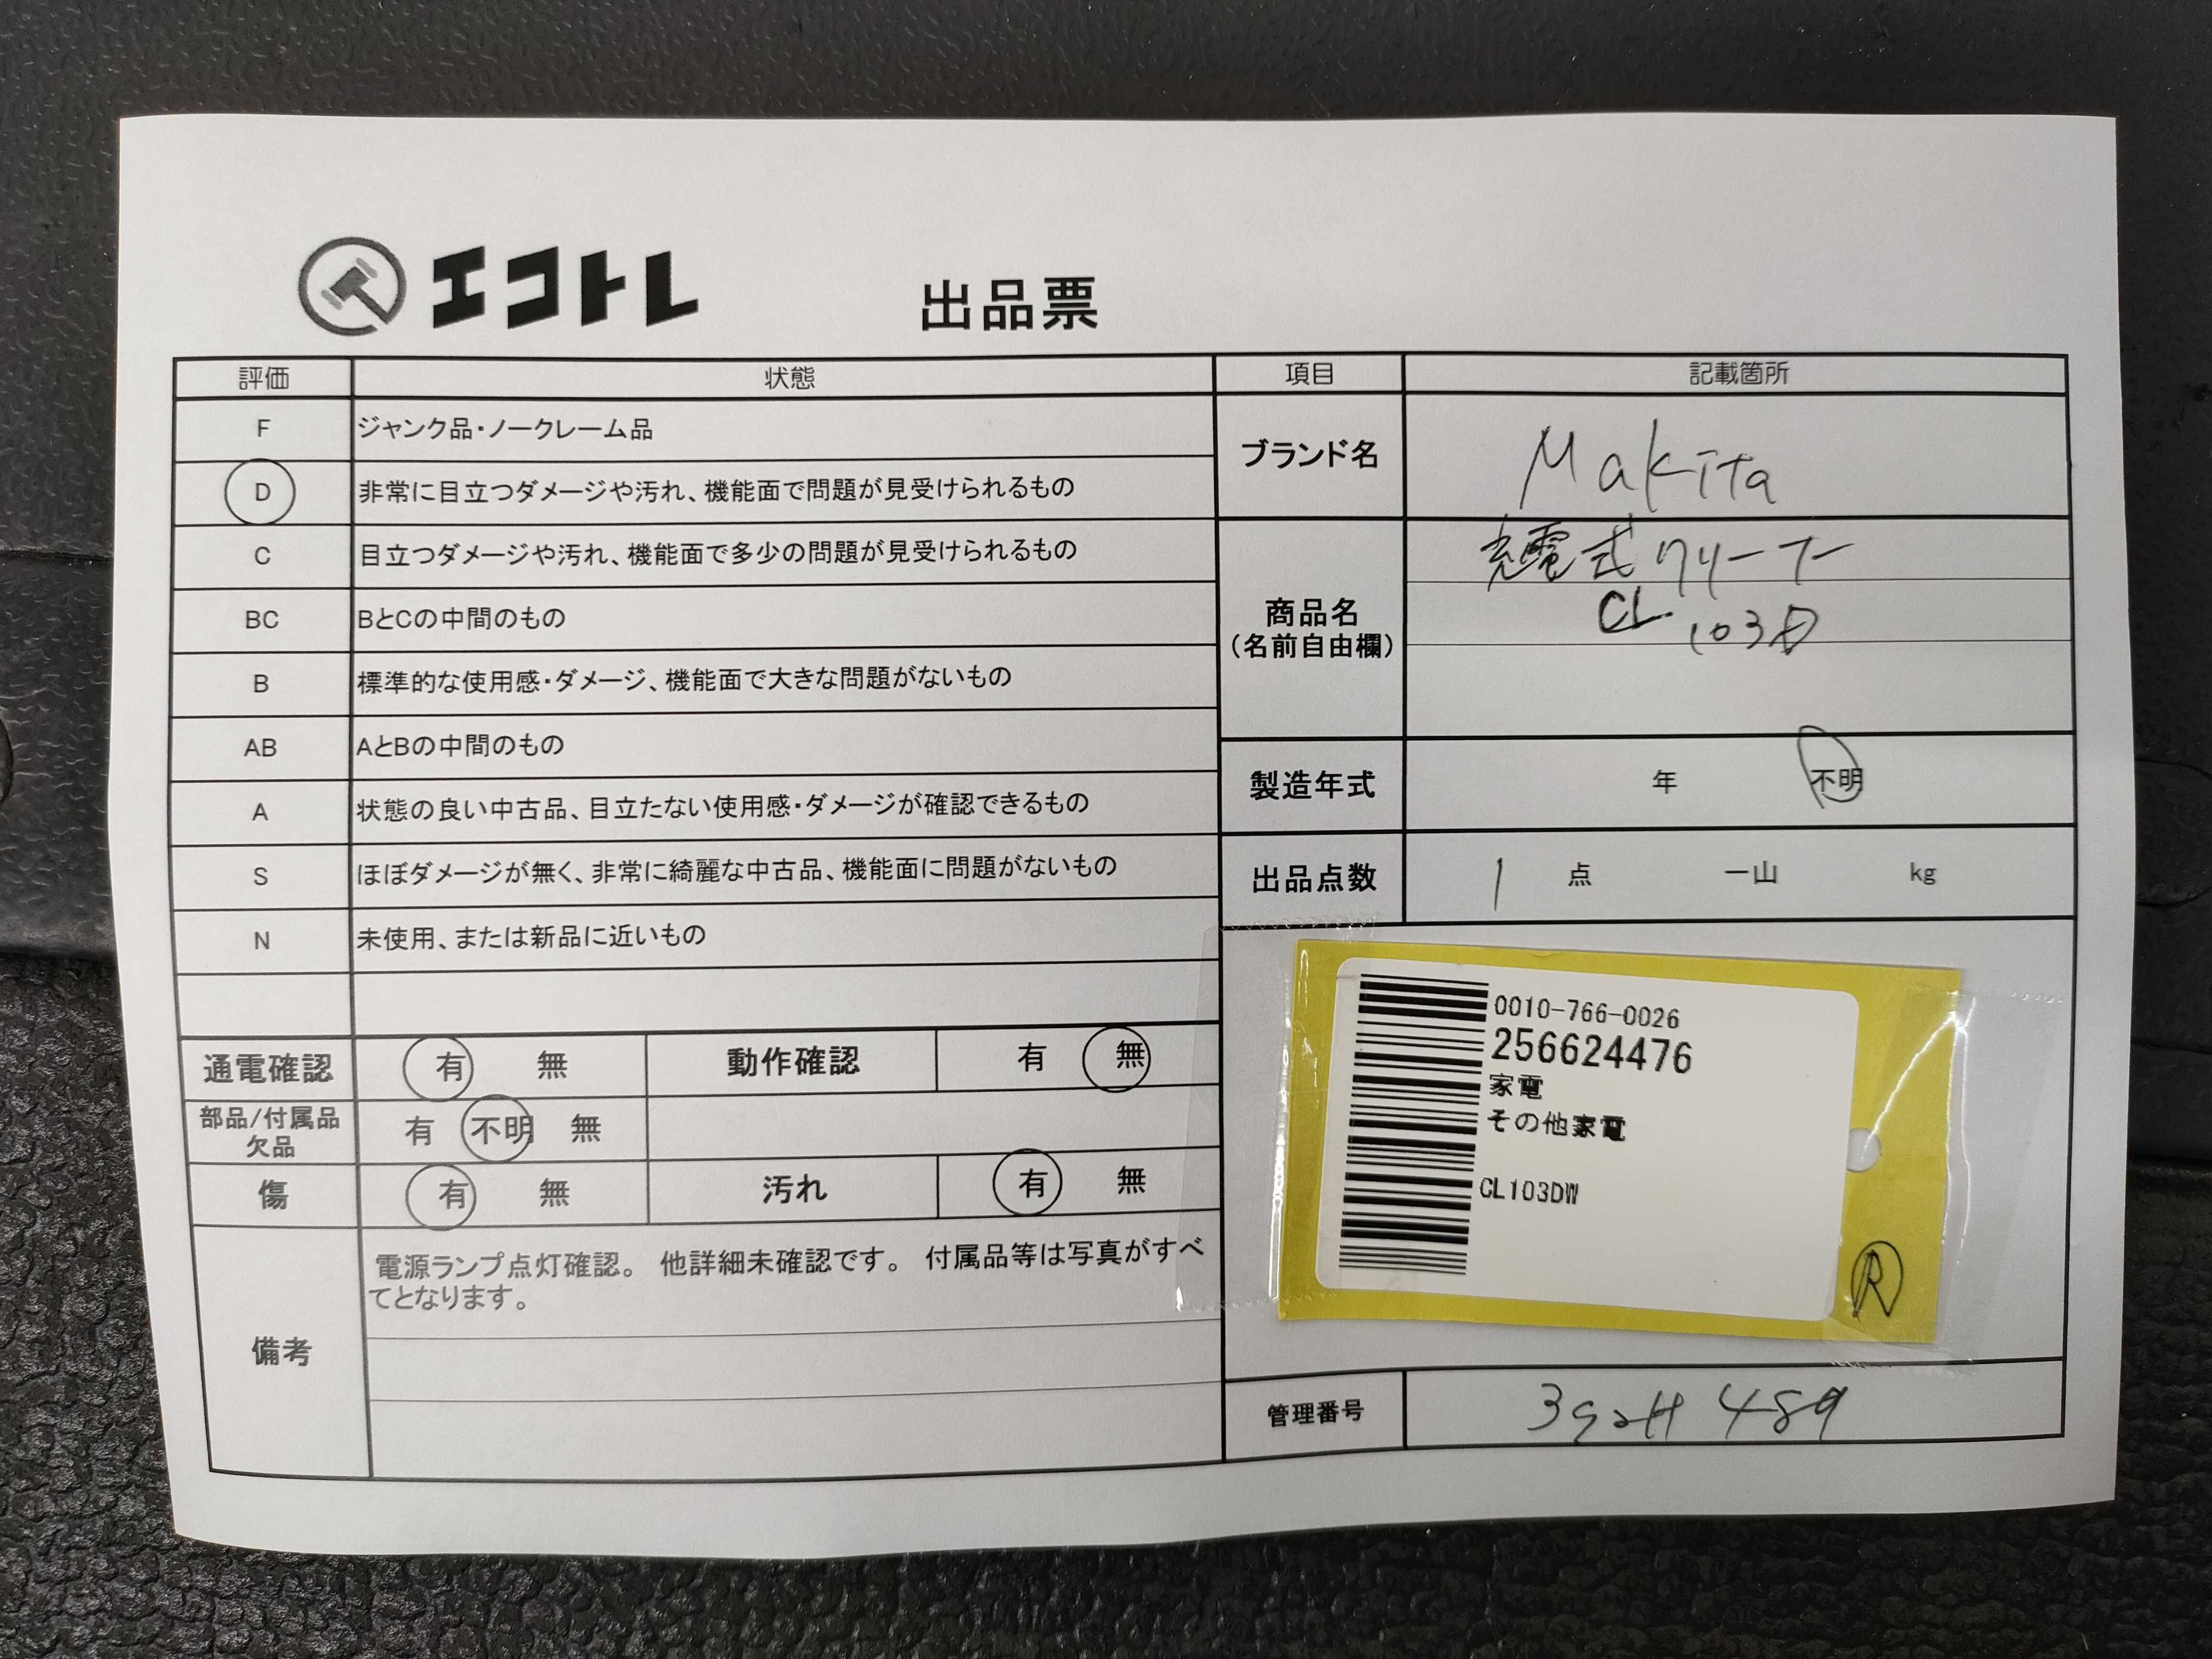 エコトレ
出品票
評価 状態
F ジャンク品・ノークレーム品
D 非常に目立つダメージや汚れ、機能面で問題が見受けられるもの
C 目立つダメージや汚れ、機能面で多少の問題が見受けられるもの
BC BとCの中間のもの
B 標準的な使用感・ダメージ、機能面で大きな問題がないもの
AB AとBの中間のもの
A 状態の良い中古品、目立たない使用感・ダメージが確認できるもの
S ほぼダメージが無く、非常に綺麗な中古品、機能面に問題がないもの
N 未使用、または新品に近いもの
通電確認 有 無 動作確認 有 無
部品/付属品
欠品 有 不明 無
傷 有 無 汚れ 有 無
備考
電源ランプ点灯確認。 他詳細未確認です。 付属品等は写真がすべ
てとなります。
項目 記載箇所
ブランド名 Makita
商品名
(名前自由欄)
充電式クリーナー
CL 103D
製造年式 年 不明
出品点数 1 点 一山 kg
0010-766-0026
256624476
家電
その他家電
CL103DW
R
管理番号 489